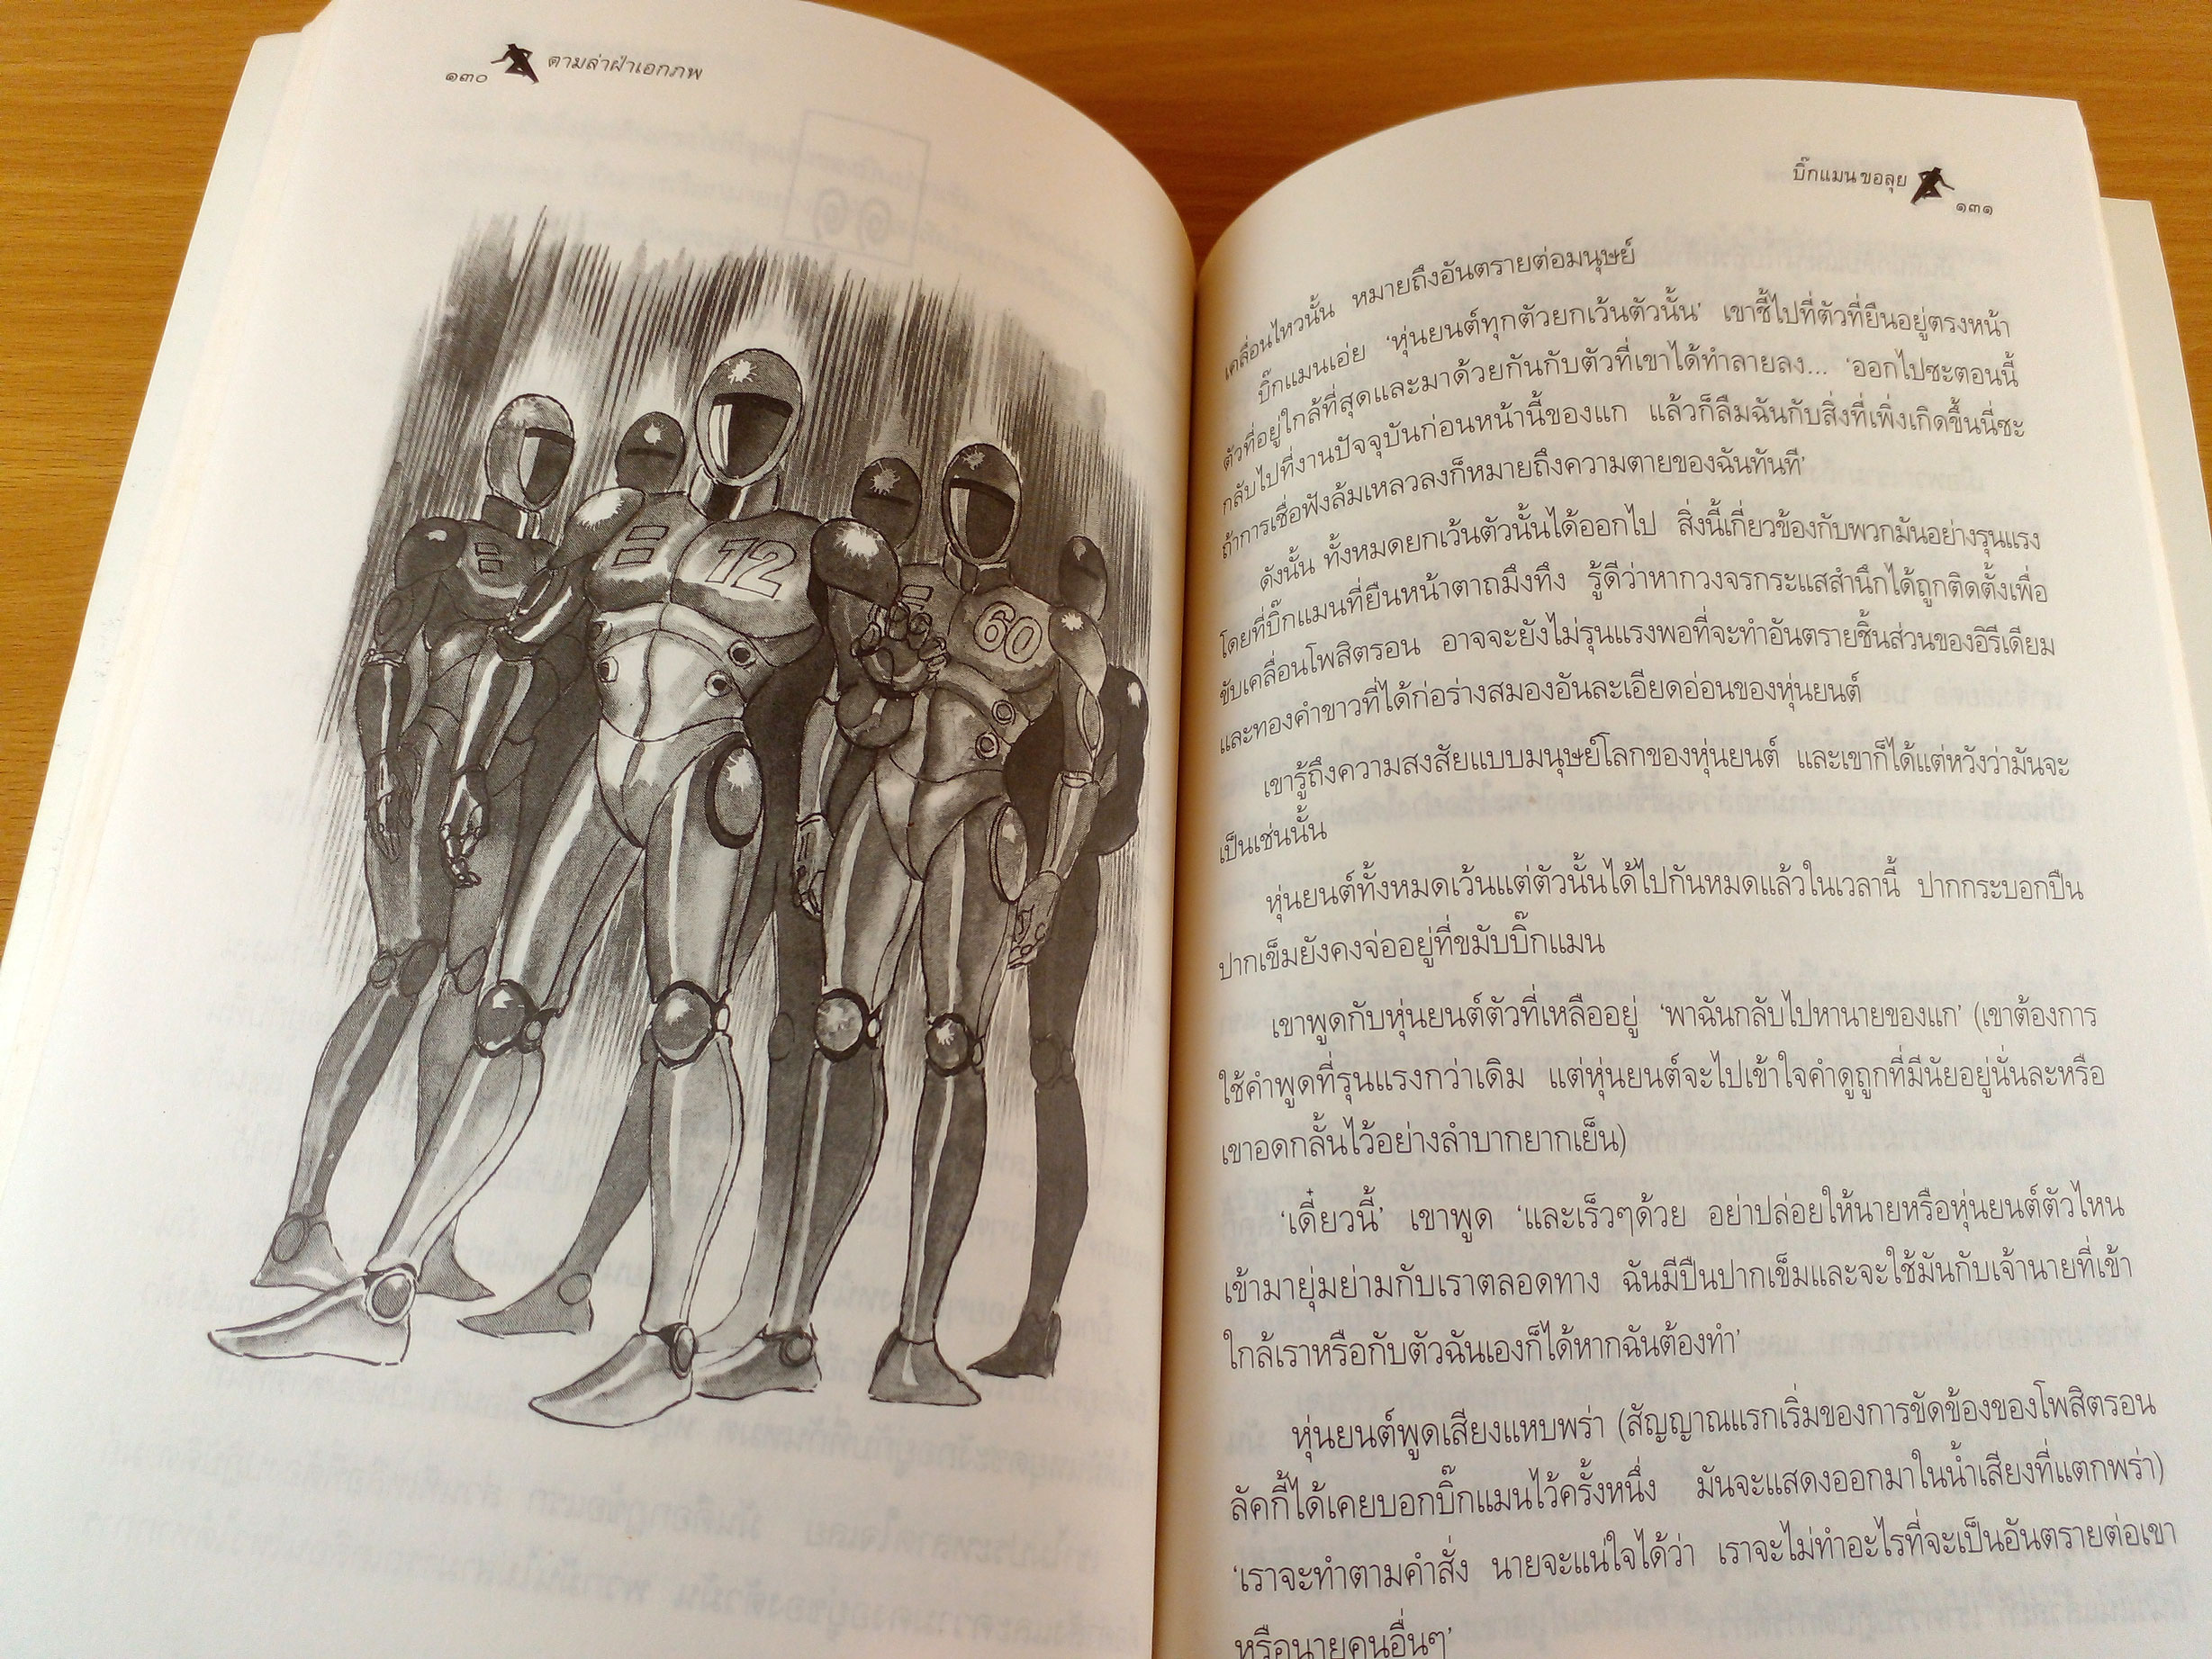 ๑๓๐ ตามล่าฝ่าเอกภพ
72
60
บิ๊กแมนขอลุย ๑๓๑
เคลื่อนไหวนั้น หมายถึงอันตรายต่อมนุษย์
บิ๊กแมนเอ่ย ‘หุ่นยนต์ทุกตัวยกเว้นตัวนั้น’ เขาชี้ไปที่ตัวที่ยืนอยู่ตรงหน้า
ตัวที่อยู่ใกล้ที่สุดและมาด้วยกันกับตัวที่เขาได้ทำลายลง... ‘ออกไปซะตอนนี้
กลับไปที่งานปัจจุบันก่อนหน้านี้ของแก แล้วก็ลืมฉันกับสิ่งที่เพิ่งเกิดขึ้นนี่ซะ
ถ้าการเชื่อฟังล้มเหลวลงก็หมายถึงความตายของฉันทันที’
ดังนั้น ทั้งหมดยกเว้นตัวนั้นได้ออกไป สิ่งนี้เกี่ยวข้องกับพวกมันอย่างรุนแรง
โดยที่บิ๊กแมนที่ยืนหน้าตาถมึงทึง รู้ดีว่าหากวงจรกระแสสำนึกได้ถูกติดตั้งเพื่อ
ขับเคลื่อนโพสิตรอน อาจจะยังไม่รุนแรงพอที่จะทำอันตรายชิ้นส่วนของอิรีเดียม
และทองคำขาวที่ได้ก่อร่างสมองอันละเอียดอ่อนของหุ่นยนต์
เขารู้ถึงความสงสัยแบบมนุษย์โลกของหุ่นยนต์ และเขาก็ได้แต่หวังว่ามันจะ
เป็นเช่นนั้น
หุ่นยนต์ทั้งหมดเว้นแต่ตัวนั้นได้ไปกันหมดแล้วในเวลานี้ ปากกระบอกปืน
ปากเข็มยังคงจ่ออยู่ที่ขมับบิ๊กแมน
เขาพูดกับหุ่นยนต์ตัวที่เหลืออยู่ ‘พาฉันกลับไปหานายของแก’ (เขาต้องการ
ใช้คำพูดที่รุนแรงกว่าเดิม แต่หุ่นยนต์จะไปเข้าใจคำดูถูกที่มีนัยอยู่นั่นละหรือ
เขาอดกลั้นไว้อย่างลำบากยากเย็น)
‘เดี๋ยวนี้’ เขาพูด ‘และเร็วๆด้วย อย่าปล่อยให้นายหรือหุ่นยนต์ตัวไหน
เข้ามายุ่มย่ามกับเราตลอดทาง ฉันมีปืนปากเข็มและจะใช้มันกับเจ้านายที่เข้า
ใกล้เราหรือกับตัวฉันเองก็ได้หากฉันต้องทำ’
หุ่นยนต์พูดเสียงแหบพร่า (สัญญาณแรกเริ่มของการขัดข้องของโพสิตรอน
ลัคกี้ได้เคยบอกบิ๊กแมนไว้ครั้งหนึ่ง มันจะแสดงออกมาในน้ำเสียงที่แตกพร่า)
‘เราจะทำตามคำสั่ง นายจะแน่ใจได้ว่า เราจะไม่ทำอะไรที่จะเป็นอันตรายต่อเขา
หรือนายคนอื่นๆ’